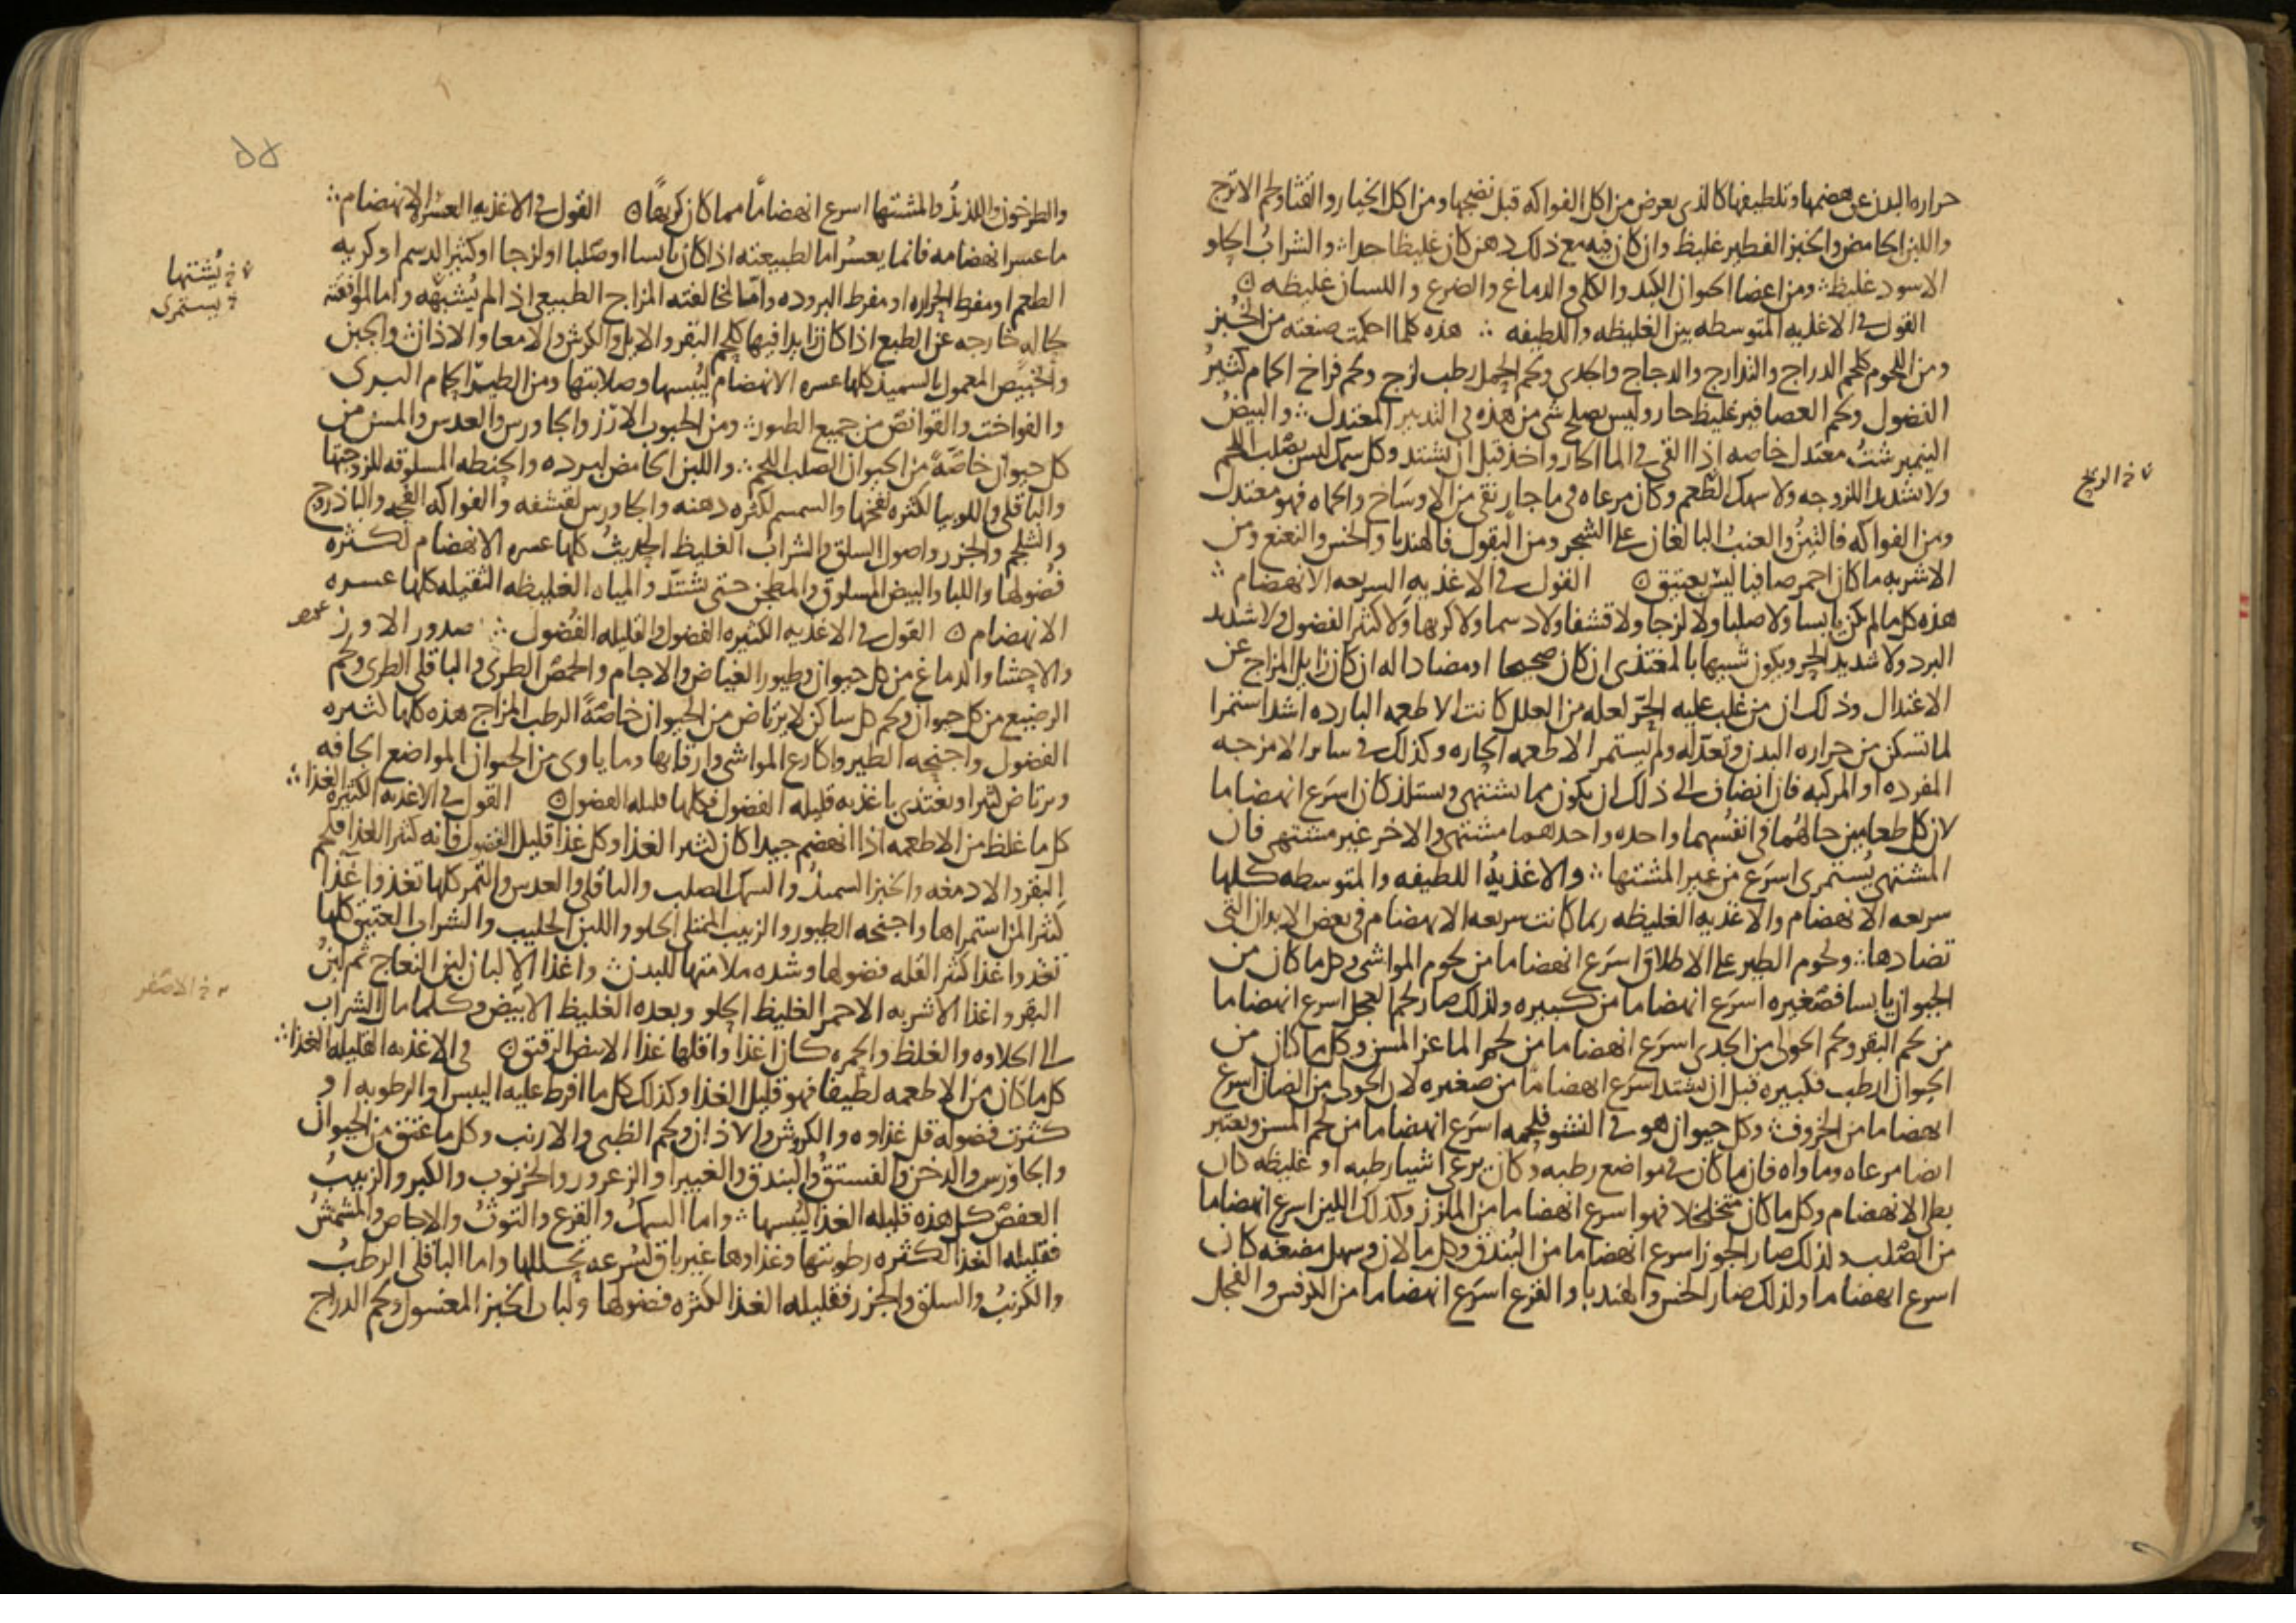 حراره البدن عن هضمها وتلطيفها كالذى يعرض من اكل الفواكه قبل نضجها ومن اكل الخيار والقثا ولحم الاترج
واللبن الحامض والخبز الفطير غليظ وان كان فيه مع ذلك دهن كان غليظا جدا والشراب الحلو
الاسود غليظ ومن اعضا الحيوان الكبد والكلى والدماغ والضرع واللسان غليظه
القول فى الاغذيه المتوسطه بين الغليظه واللطيفه هذه كلما احكمت صنعته من الخبز
ومن اللحوم كلحم الدراج والتدارج والدجاج والجدى ولحم الحمل رطب لزج ولحم فراخ الحمام كثير
الفضول ولحم العصافير غليظ حار وليس يصلح شى من هذه فى التدبير المعتدل والبيض
النيمبرشت معتدل خاصه اذا القى فى الما الحار واخذ قبل ان يشتد وكل سمك ليس بصلب اللحم
ولا شديد اللزوجه ولا سهك الطعم وكان مرعاه فى ما جار نقى من الاوساخ والحماه فهو معتدل
خ الريح
ومن الفواكه فالتين والعنب البالغان على الشجر ومن البقول فالهندبا والخس والنعنع ومن
الاشربه ما كان احمر صافيا ليس بعتيق القول فى الاغذيه السريعه الانهضام
هذه كل ما لم يكن يابسا ولا صلبا ولا لزجا ولا قشفا ولا دسما ولا كريها ولا كثير الفضول ولا شديد
البرد ولا شديد الحر ويكون شبيها بالمغتذى ان كان صحيحا او مضادا له ان كان زايل المزاج عن
الاعتدال وذلك ان من غلب عليه الحر لعله من العلل كانت الاطعمه البارده اشد استمرا
لما تسكن من حراره البدن وتعدله ولم يستمر الاطعمه الحاره وكذلك فى ساير الامزجه
المفرده او المركبه فان انضاف الى ذلك ان يكون مما يشتهى ويستلذ كان اسرع انهضاما
لان كل طعامين حالهما فى انفسهما واحده واحدهما مشتهى والاخر غير مشتهى فان
المشتهى يستمرى اسرع من غير المشتها والاغذيه اللطيفه والمتوسطه كلها
سريعه الانهضام والاغذيه الغليظه ربما كانت سريعه الانهضام فى بعض الابدان التى
تضادها ولحوم الطير على الاطلاق اسرع انهضاما من لحوم المواشى وكل ما كان من
الحيوان يابسا فصغيره اسرع انهضاما من كبيره ولذلك صار لحم العجل اسرع انهضاما
من لحم البقر ولحم الحولى من الجدى اسرع انهضاما من لحم الماعز المسن وكل ما كان من
الحيوان الرطب فكبيره قبل ان يشتد اسرع انهضاما من صغيره لان الحولى من الضان اسرع
انهضاما من الخروف وكل حيوان هو فى النشو فلحمه اسرع انهضاما من لحم المسن ويعتبر
ايضا مرعاه وماواه فان ما كان فى مواضع رطبه وكان يرعى اشيا رطبه او غليظه كان
بطى الانهضام وكل ما كان متخلخلا فهو اسرع انهضاما من الملزز وكذلك اللين اسرع انهضاما
من الصلب ولذلك صار الجوز اسرع انهضاما من البندق وكل ما لان وسهل مضغه كان
اسرع انهضاما ولذلك صار الخس والهندبا والقرع اسرع انهضاما من الكرفس والفجل
والطرخون واللذيذ والمشتها اسرع انهضاما مما كان كريها القول فى الاغذيه العسره الانهضام
ما عسر انهضامه فانما يعسر اما لطبيعته اذا كان يابسا او صلبا او لزجا او كثير الدسم او كريه
خ يشتها
خ يستمرى
الطعم او مفرط الحراره او مفرط البروده واما لمخالفته المزاج الطبيعى اذ لم يشبهه واما لموافقته
حاله خارجه عن الطبع اذا كان زايدا فيها كلحم البقر والابل والكرش والامعا والاذان والجبن
والخبيص المعمول بالسميد كلها عسره الانهضام ليبسها وصلابتها ومن الطير الحمام البرى
والفواخت والقوانص من جميع الطيور ومن الحبوب الارز والجاورس والعدس والمسن من
كل حيوان خاصة من الحيوان الصلب اللحم واللبن الحامض لبرده والحنطه المسلوقه للزوجتها
والباقلى واللوبيا لكثره نفخها والسمسم لكثره دهنه والجاورس لقشفه والفواكه الفجه والباذروج
والشلجم والجزر واصول السلق والشراب الغليظ الحديث كلها عسره الانهضام لكثره
فضولها واللبا والبيض المسلوق والمطجن حتى يشتد والمياه الغليظه الثقيله كلها عسره
الانهضام القول فى الاغذيه الكثيره الفضول والقليله الفضول صدور الاوز
والاحشا والدماغ من كل حيوان وطيور الغياض والاجام والحمص الطرى والباقلى الطرى ولحم
الرضيع من كل حيوان ولحم كل ساكن لا يرتاض من الحيوان خاصة الرطب المزاج هذه كلها كثيره
الفضول واجنحه الطير واكارع المواشى وارقابها وما ياوى من الحيوان المواضع الجافه
ويرتاض كثيرا ويغتذى باغذيه قليله الفضول فكلها قليله الفضول القول فى الاغذيه الكثيره الغذا
كل ما غلظ من الاطعمه اذا انهضم جيدا كان كثير الغذا وكل غذا قليل الفضول فانه كثير الغذا فلحم
البقر والادمغه والخبز السميد والسمك الصلب والباقلى والعدس والتمر كلها تغذوا غذا
كثيرا لمن استمراها واجنحه الطيور والزبيب الممتلى الحلو واللبن الحليب والشراب العتيق كلها
تغذوا غذا كثيرا لقله فضولها وشده ملامتها للبدن واغذا الالبان لبن النعاج ثم لبن
البقر واغذا الاشربه الاحمر الغليظ الحلو وبعده الغليظ الابيض وكلما مال الشراب
خ الاصفر
الى الحلاوه والغلظ والحمره كان اغذا واقلها غذا الابيض الرقيق فى الاغذيه القليله الغذا
كل ما كان من الاطعمه لطيفا فهو قليل الغذا وكذلك كل ما افرط عليه اليبس او الرطوبه او
كثرت فضوله قل غذاوه والكروش والاذان ولحم الظبى والارنب وكل ما عتق من الحيوان
والجاورس والدخن والفستق والبندق والغبيرا والزعرور والخرنوب والكبر والزبيب
العفص كل هذه قليله الغذا ليبسها واما السمك والقرع والتوث والاجاص والمشمش
فقليله الغذا لكثره رطوبتها وغذاوها غير باق لسرعه تحللها واما الباقلى الرطب
والكرنب والسلق والجزر فقليله الغذا لكثره فضولها ولباب الخبز المغسول ولحم الدراج